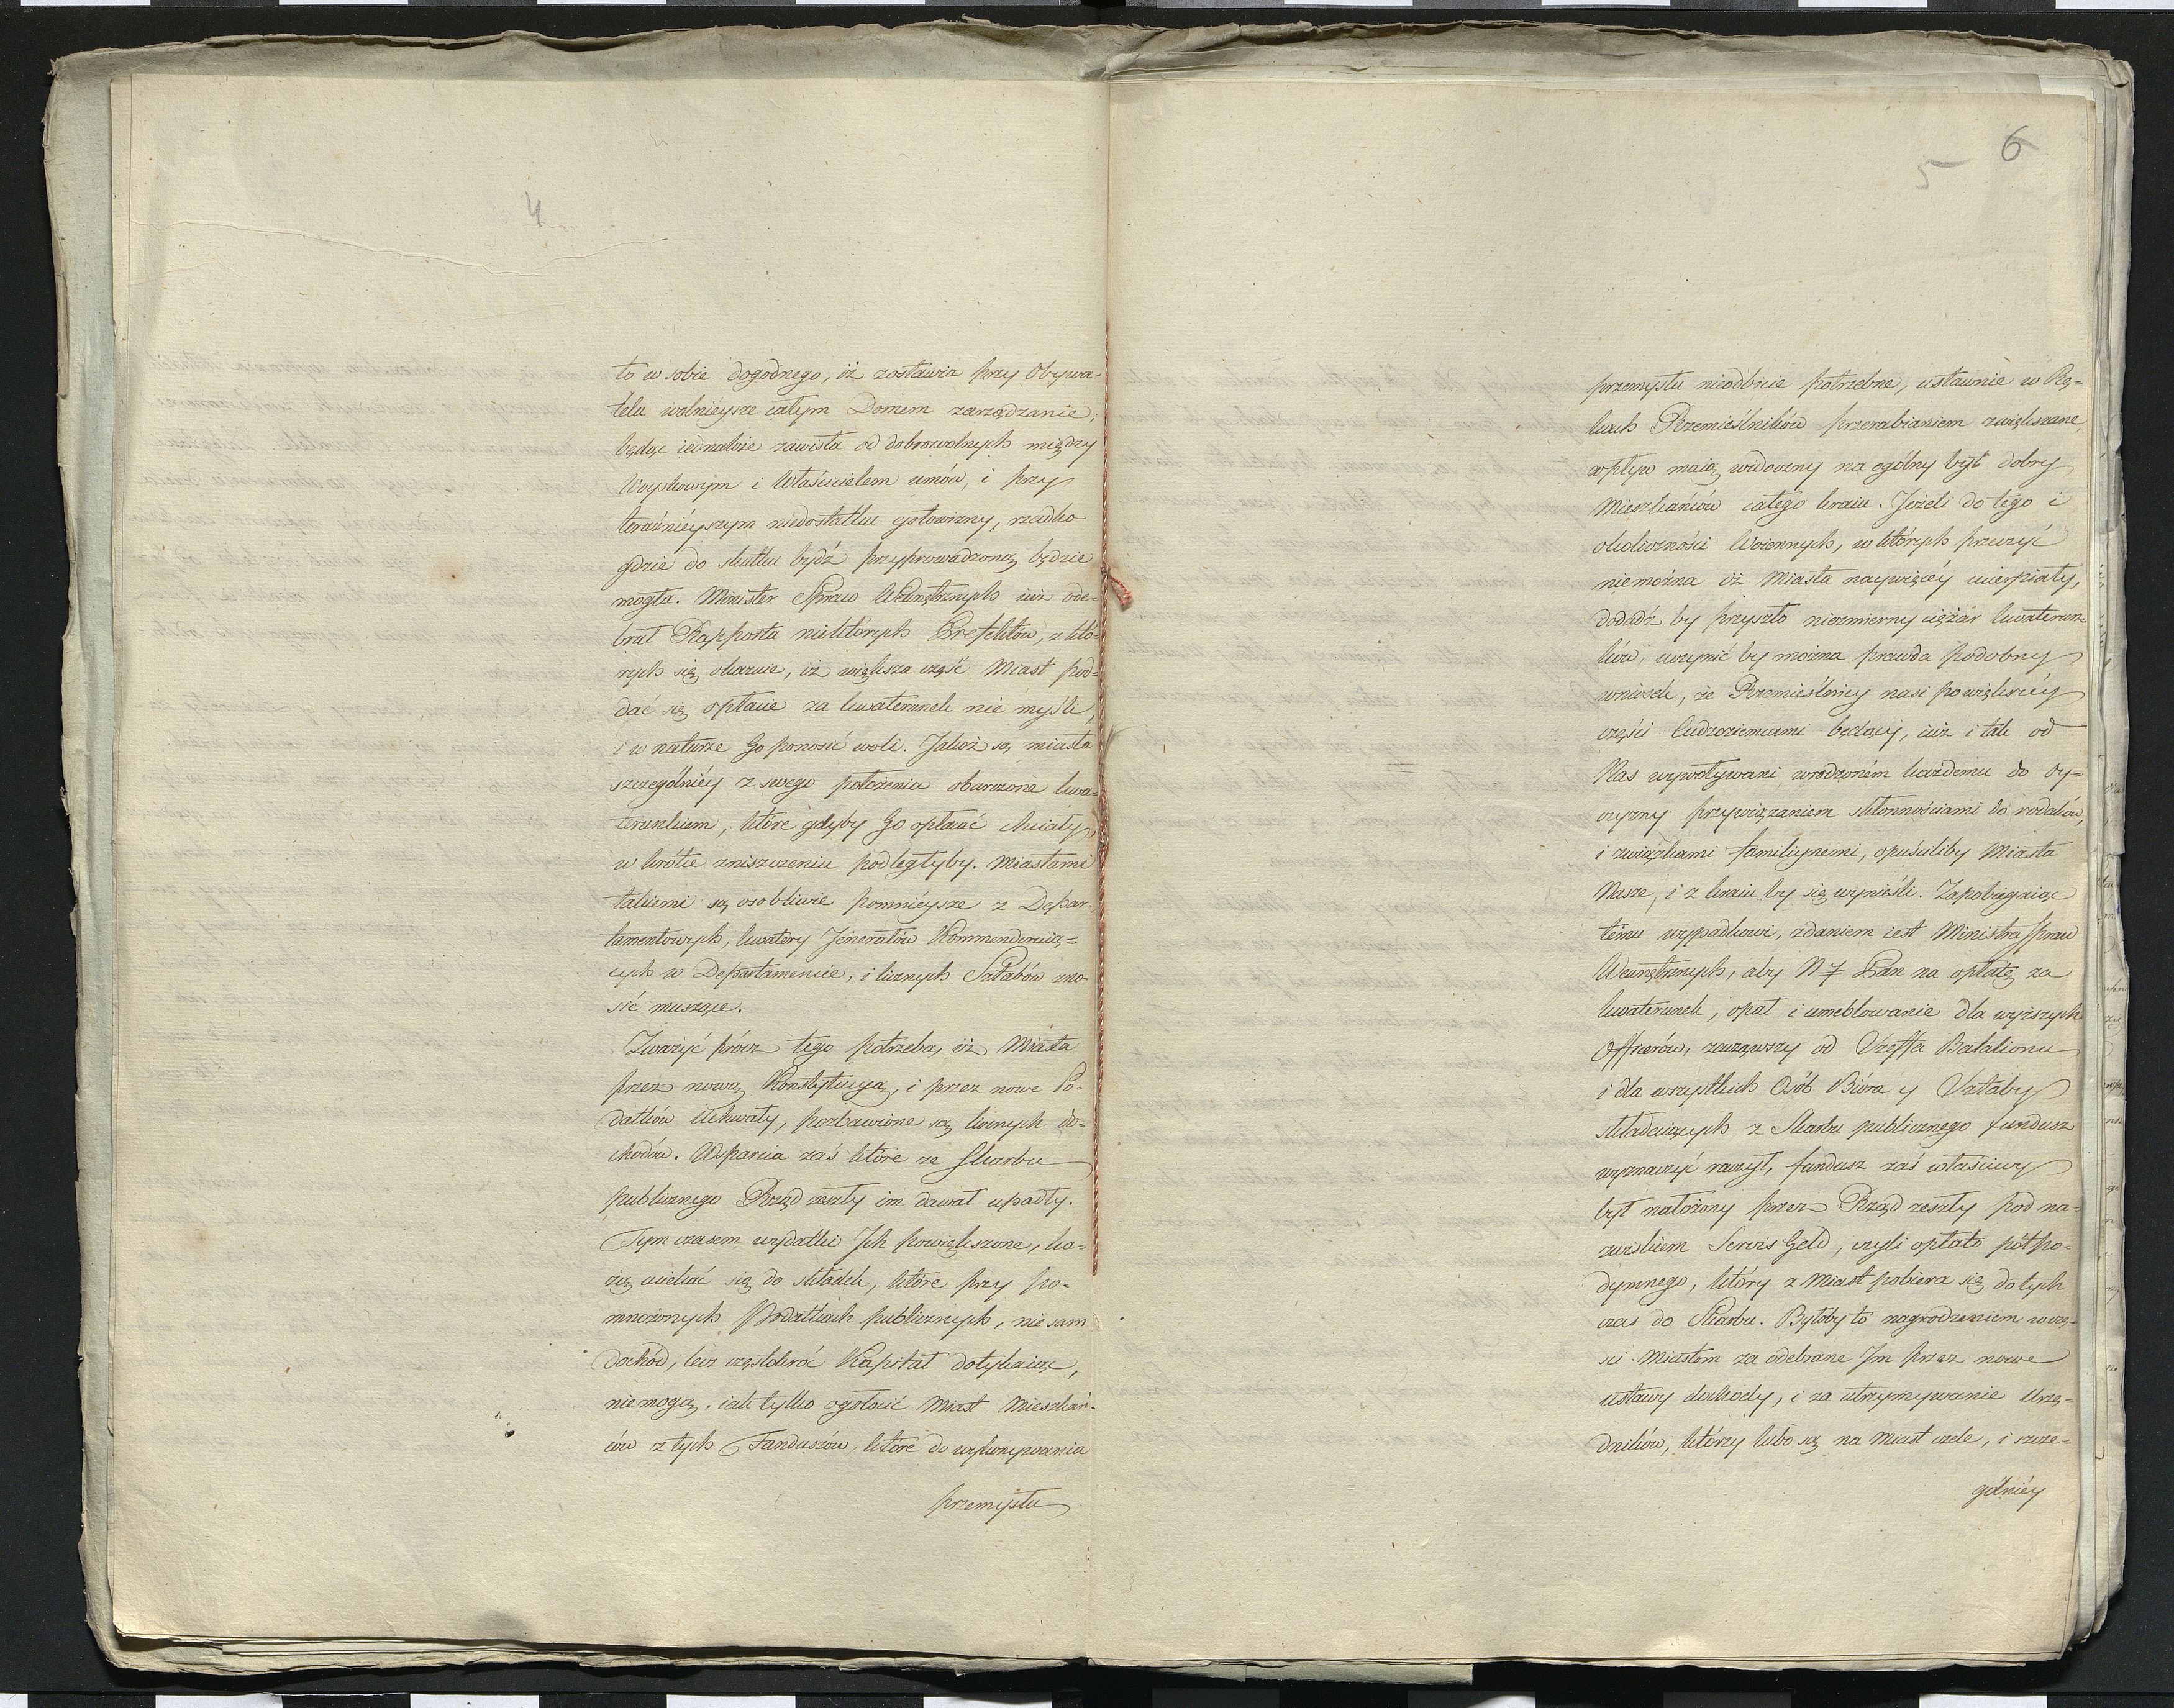 4
to w sobie dogodnego, iż zostawia przy Obywa-
telu wolnieysze całym Domem zarządzanie;
będąc iednakże zawisła od dobrowolnych między
Woyskowym i Właścicielem umów, i przy
teraźnieyszym niedostatku gotowizny, rzadko
gdzie do skutku bydź przyprowadzoną będzie
mogła. Minister Spraw Wewnętrznych iuż ode-
brał Rapporta niektórych Prefektów, z któ-
rych się okazuie, iż większa część Miast pod-
dać się opłacie za kwaterunek nie myśli,
i w naturze Go ponosić woli. Jakoż są miasta
szczególniéy z swego położenia obarczone kwa-
terunkiem, które gdyby Go opłacać chciały,
w krótce zniszczeniu podległyby. Miastami
takiemi są osobliwie pomnieysze z Depar-
tamentowych, kwatery Jenerałów Kommenderuią-
cych w Departamencie, i licznych Sztabów zno-
sić muszące.
Zważyć prócz tego potrzeba, iż Miasta
przez nową Konstytucyą, i przez nowe Po-
datków Uchwały, pozbawione są licznych do-
chodów. Wsparcia zaś które ze Skarbu
publicznego Rząd zeszły im dawał upadły.
Tym czasem wydatki Jch powiększone, ka-
żą uciekać się do składek, które przy po-
mnożonych Podatkach publicznych, nie sam
dochód, lecz częstokroć Kapitał dotykaiąc,
niemogą, iak tylko ogołocić Miast Mieszkań-
ców z tych Funduszów, które do wykonywania
przemysłu
6
5
przemysłu nieodbicie potrzebne, ustawnie w Rę-
kach Rzemieślników przerabianiem zwiększane,
wpływ maią widoczny na ogólny byt dobry
Mieszkańców całego kraiu. Jeżeli do tego i
okoliczności Woiennych, w których przeczyć
niemożna iż Miasta naywięcéy ucierpiały,
dodadź by przyszło niezmierny ciężar kwaterun-
ków, uczynić by można prawda podobny
wniosek, że Rzemieślnicy nasi po większéy
części Cudzoziemcami będący, iuż i tak od
Nas wywoływani wrodzoném każdemu do Oy-
czyzny przywiązaniem skłonnościami do rodaków,
i związkami familiynemi, opuściliby Miasta
Nasze, i z kraiu by się wynieśli. Zapobiegaiąc
temu wypadkowi, zdaniem iest Ministra Spraw
Wewnętrznych, aby N. Pan na opłatę za
kwaterunek, opał i umeblowanie dla wyższych
Officerów, zacząwszy od Szeffa Batalionu
i dla wszystkich Osób Biura y Sztaby
składaiących z Skarbu publicznego fundusz
wyznaczyć raczył, fundusz zaś właściwy
był nałożony przez Rząd zeszły pod na-
zwiskiem Servis Geld, czyli opłata pół po-
dymnego, który z Miast pobiera się do tych
czas do Skarbu. Byłoby to nagrodzeniem w czę-
ści Miastom za odebrane Jm przez nowe
ustawy dochody, i za utrzymywanie Urzę-
dników, którzy lubo są na Miast czele, i szcze-
gólniéy